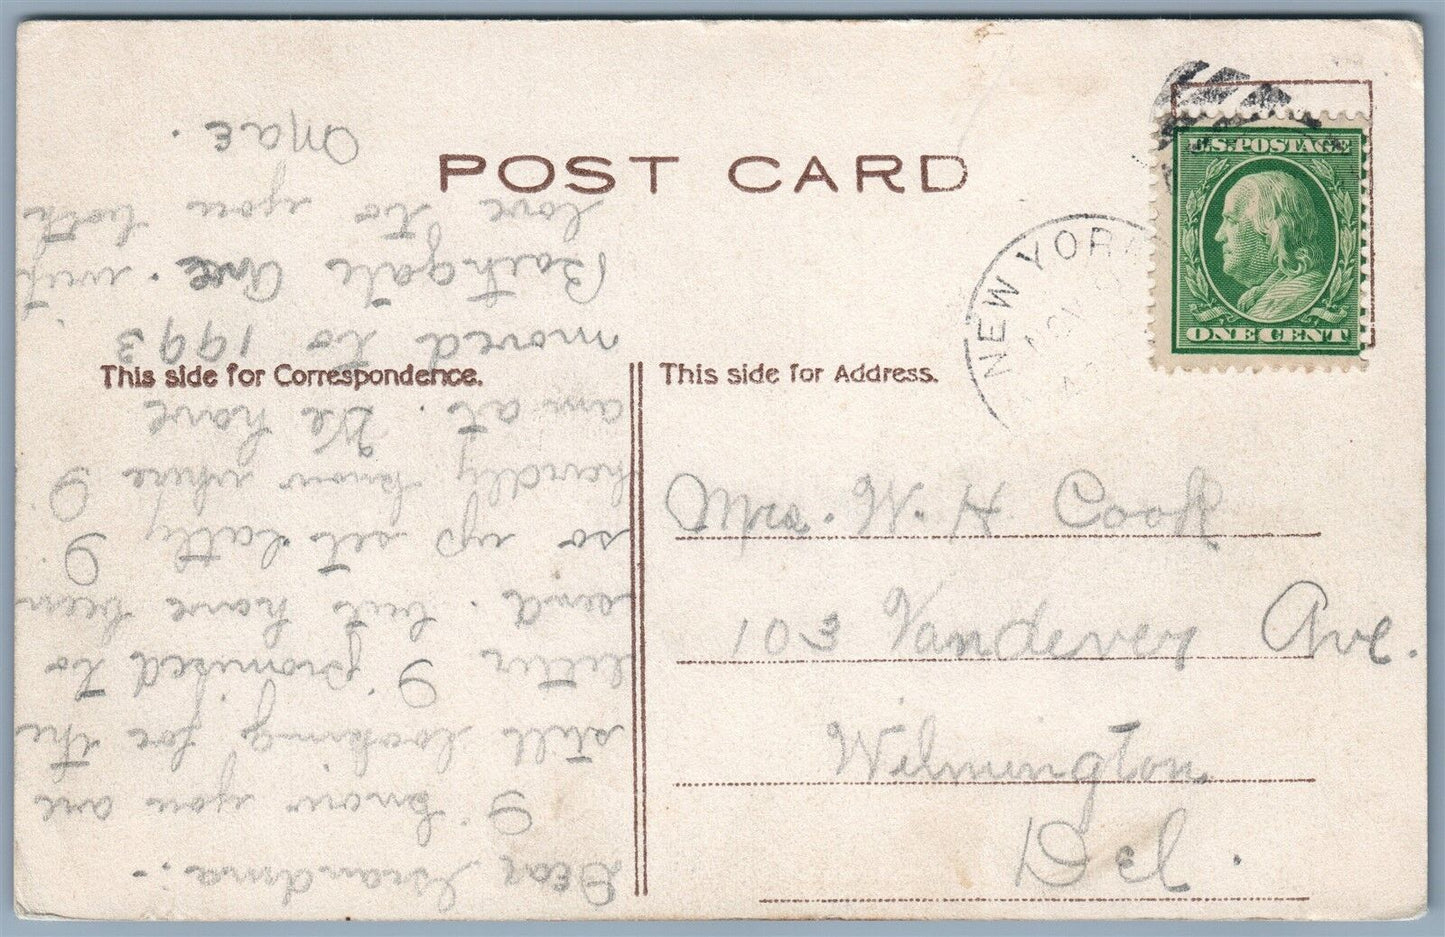 POST CARD
U.S.POSTAGE
ONE CENT
NEW YORK
This side for Correspondence.
This side for Address.
Mrs. W. H. Cook
103 Vandever Ave.
Wilmington
Del.
Dear Grandma:-
I know you are
still looking for the
letter I promised to
send. but have been
so up set latly I
hardly know where I
am at. We have
moved to 1993
Bathgate Ave. with
love to you both
Mae.